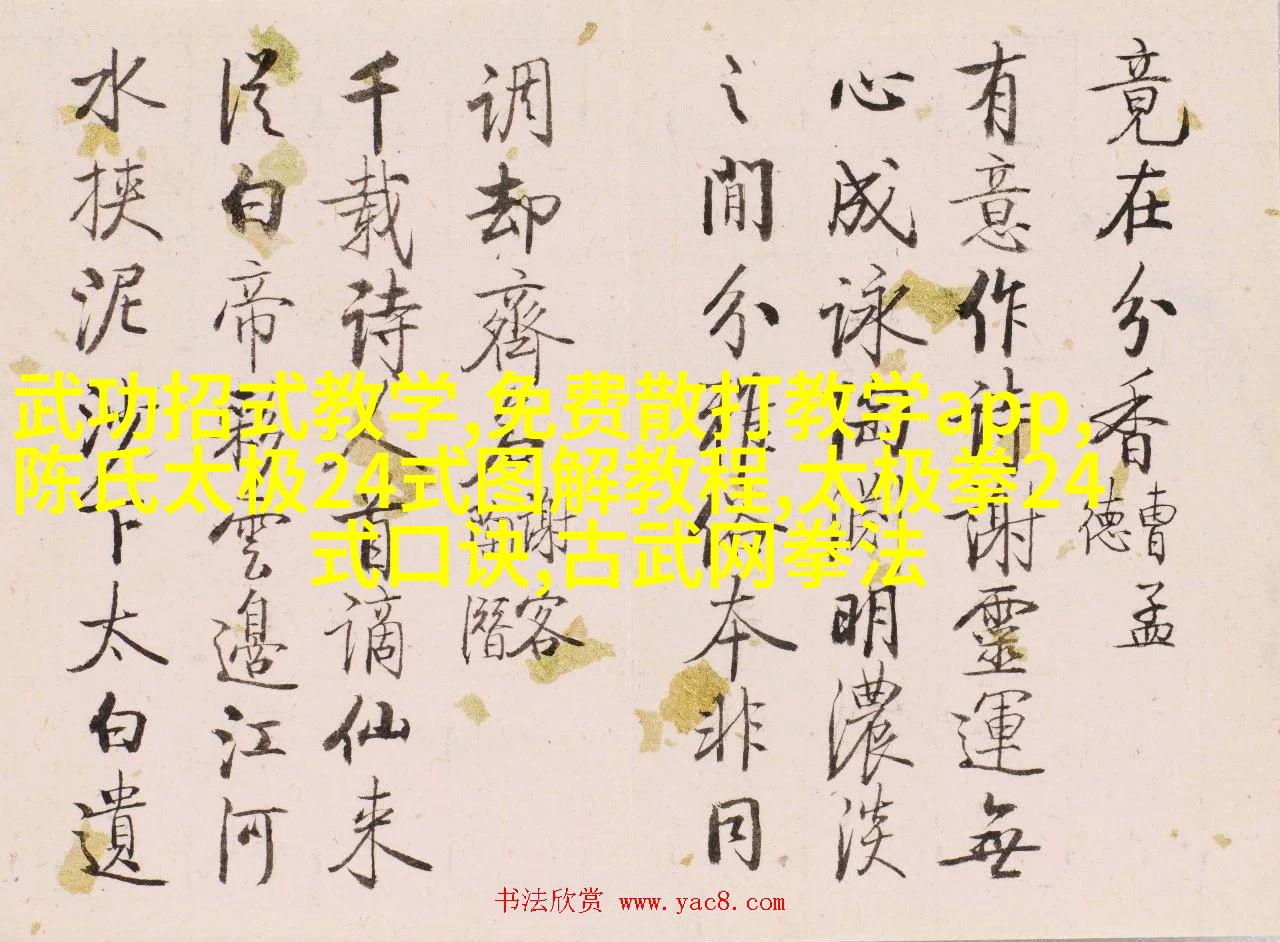 竟在分香
曹孟
德
有意作诗謝靈運無
心成詠陶淵明濃淡
之間分雅本非同
调却齊名
謝客
陶潛
千载诗人首谪仙来
從白帝彩雲邊江河
水挟泥沙下太白遺
武功招式教学,免费散打教学app,
陈氏太极24式图解教程,太极拳24
式口诀,古武网拳法
书法欣赏 www.yac8.com